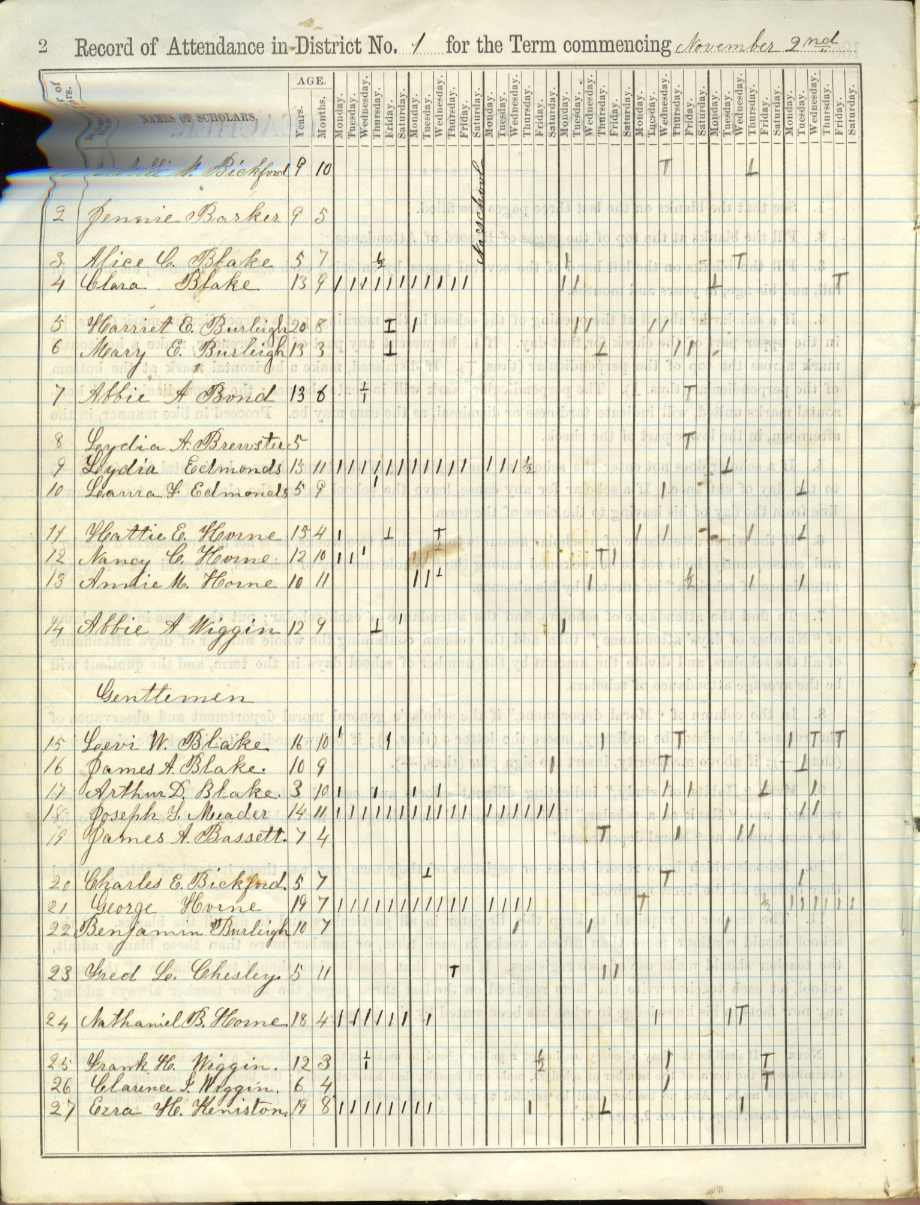 2 Record of Attendance in District No. 1 for the Term commencing November 2nd
NAMES OF SCHOLARS.
AGE.
Years. Months. Monday. Tuesday. Wednesday. Thursday. Friday. Saturday. Monday. Tuesday. Wednesday. Thursday. Friday. Saturday. Monday. Tuesday. Wednesday. Thursday. Friday. Saturday. Monday. Tuesday. Wednesday. Thursday. Friday. Saturday. Monday. Tuesday. Wednesday. Thursday. Friday. Saturday. Monday. Tuesday. Wednesday. Thursday. Friday. Saturday. Monday. Tuesday. Wednesday. Thursday. Friday. Saturday.
Bickford 9 10
No school
2 Jennie Barker 9 5
3 Alice C. Blake 5 7
4 Clara Blake 13 9
5 Harriet E. Burleigh 20 8
6 Mary E. Burleigh 13 3
7 Abbie A Bond 13 6
8 Lydia A. Brewster 5
9 Lydia Edmonds 15 11
10 Laura F Edmonds 5 9
11 Hattie E. Horne 15 4
12 Nancy C. Horne 12 10
13 Annie M. Horne 10 11
14 Abbie A Wiggin 12 9
Gentlemen
15 Levi W. Blake 16 10
16 James A. Blake. 10 9
17 Arthur D. Blake. 3 10
18 Joseph F. Meader 14 11
19 James A. Bassett. 7 4
20 Charles E. Bickford. 5 7
21 George Horne 19 7
22 Benjamin Burleigh 10 7
23 Fred L. Chesley. 5 11
24 Nathaniel B. Horne 18 4
25 Frank H. Wiggin. 12 3
26 Clarence F. Wiggin. 6 4
27 Ezra H. Keniston, 19 8